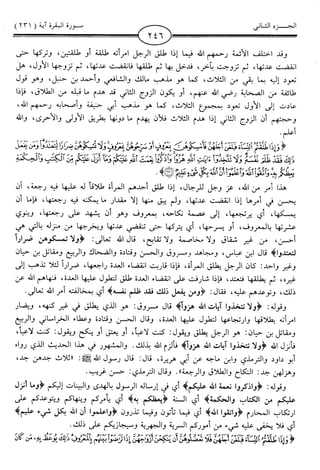 الجزء الثانى
٢٤٦
سورة البقرة آية (٢٣١)
وقد اختلف الأئمة رحمهم الله فيما إذا طلق الرجل امرأته طلقة أو طلقتين، وتركها حتى
انقضت عدتها، ثم تزوجت بآخر، فدخل بها ثم طلقها فانقضت عدتها، ثم تزوجها الأول، هل
تعود إليه بما بقي من الثلاث، كما هو مذهب مالك والشافعي وأحمد بن حنبل، وهو قول
طائفة من الصحابة رضي الله عنهم، أو يكون الزوج الثاني قد هدم ما قبله من الطلاق، فإذا
عادت إلى الأول تعود بمجموع الثلاث، كما هو مذهب أبي حنيفة وأصحابه رحمهم الله،
وحجتهم أن الزوج الثاني إذا هدم الثلاث فلأن يهدم ما دونها بطريق الأولى والأحرى، والله
أعلم.
﴿وَإِذَا طَلَّقْتُمُ النِّسَاءَ فَبَلَغْنَ أَجَلَهُنَّ فَأَمْسِكُوهُنَّ بِمَعْرُوفٍ أَوْ سَرِّحُوهُنَّ بِمَعْرُوفٍ وَلَا تُمْسِكُوهُنَّ ضِرَارًا لِتَعْتَدُوا وَمَنْ يَفْعَلْ
ذَلِكَ فَقَدْ ظَلَمَ نَفْسَهُ وَلَا تَتَّخِذُوا آيَاتِ اللَّهِ هُزُوًا وَاذْكُرُوا نِعْمَتَ اللَّهِ عَلَيْكُمْ وَمَا أَنْزَلَ عَلَيْكُمْ مِنَ الْكِتَابِ وَالْحِكْمَةِ
يَعِظُكُمْ بِهِ وَاتَّقُوا اللَّهَ وَاعْلَمُوا أَنَّ اللَّهَ بِكُلِّ شَيْءٍ عَلِيمٌ﴾
هذا أمر من الله، عز وجل للرجال، إذا طلق أحدهم المرأة طلاقاً له عليها فيه رجعة، أن
يحسن في أمرها إذا انقضت عدتها، ولم يبق منها إلا مقدار ما يمكنه فيه رجعتها، فإما أن
يمسكها، أي يرتجعها، إلى عصمة نكاحه، بمعروف وهو أن يشهد على رجعتها، وينوي
عشرتها بالمعروف، أو يسرحها، أي يتركها حتى تنقضي عدتها ويخرجها من منزله بالتي هي
أحسن، من غير شقاق ولا مخاصمة ولا تقابح، قال الله تعالى: ﴿ولا تمسكوهن ضراراً
لتعتدوا﴾ قال ابن عباس، ومجاهد ومسروق والحسن وقتادة والضحاك والربيع ومقاتل بن حيان
وغير واحد: كان الرجل يطلق المرأة، فإذا قاربت انقضاء العدة راجعها، ضراراً لئلا تذهب إلى
غيره، ثم يطلقها فتعتد، فإذا شارفت على انقضاء العدة طلق لتطول عليها العدة، فنهاهم الله عن
ذلك، وتوعدهم عليه، فقال: ﴿ومن يفعل ذلك فقد ظلم نفسه﴾ أي بمخالفته أمر الله تعالى.
وقوله: ﴿ولا تتخذوا آيات الله هزواً﴾ قال مسروق: هو الذي يطلق في غير كنهه، ويضار
امرأته بطلاقها وارتجاعها لتطول عليها العدة، وقال الحسن وقتادة وعطاء الخراساني والربيع
ومقاتل بن حيان: هو الرجل يطلق ويقول: كنت لاعباً، أو يعتق أو ينكح ويقول: كنت لاعباً،
فأنزل الله ﴿ولا تتخذوا آيات الله هزواً﴾ فألزم الله بذلك. والمشهور في هذا الحديث الذي رواه
أبو داود والترمذي وابن ماجه عن أبي هريرة، قال: قال رسول الله ﷺ: «ثلاث جدهن جد،
وهزلهن جد: النكاح والطلاق والرجعة». وقال الترمذي: حسن غريب.
وقوله: ﴿واذكروا نعمة الله عليكم﴾ أي في إرساله الرسول بالهدى والبينات إليكم ﴿وما أنزل
عليكم من الكتاب والحكمة﴾ أي السنة ﴿يعظكم به﴾ أي يأمركم وينهاكم ويتوعدكم على
ارتكاب المحارم ﴿واتقوا الله﴾ أي فيما تأتون وفيما تذرون ﴿واعلموا أن الله بكل شيء عليم﴾
أي فلا يخفى عليه شيء من أموركم السرية والجهرية وسيجازيكم على ذلك.
﴿وَإِذَا طَلَّقْتُمُ النِّسَاءَ فَبَلَغْنَ أَجَلَهُنَّ فَلَا تَعْضُلُوهُنَّ أَنْ يَنْكِحْنَ أَزْوَاجَهُنَّ إِذَا تَرَاضَوْا بَيْنَهُمْ بِالْمَعْرُوفِ ذَلِكَ يُوعَظُ بِهِ مَنْ كَانَ